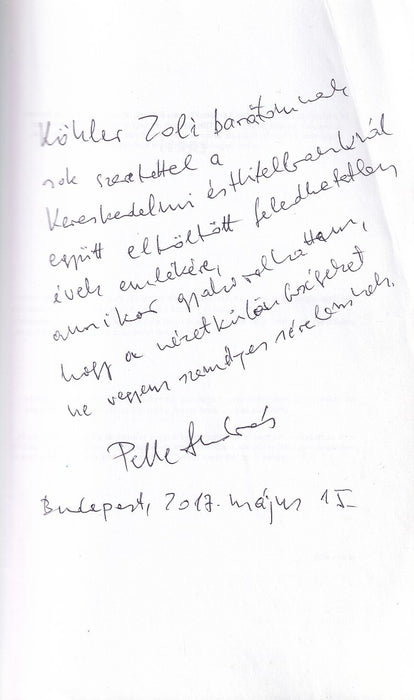 Köhler Zoli barátomnak
sok szeretettel a
Kereskedelmi és Hitelbanknál
együtt eltöltött feledhetetlen
évek emlékére,
amikor gyakorolhattam,
hogy a nézetkülönbségeket
ne vegyem személyes sérelemnek.
Pelle András
Budapest, 2017. május 15.